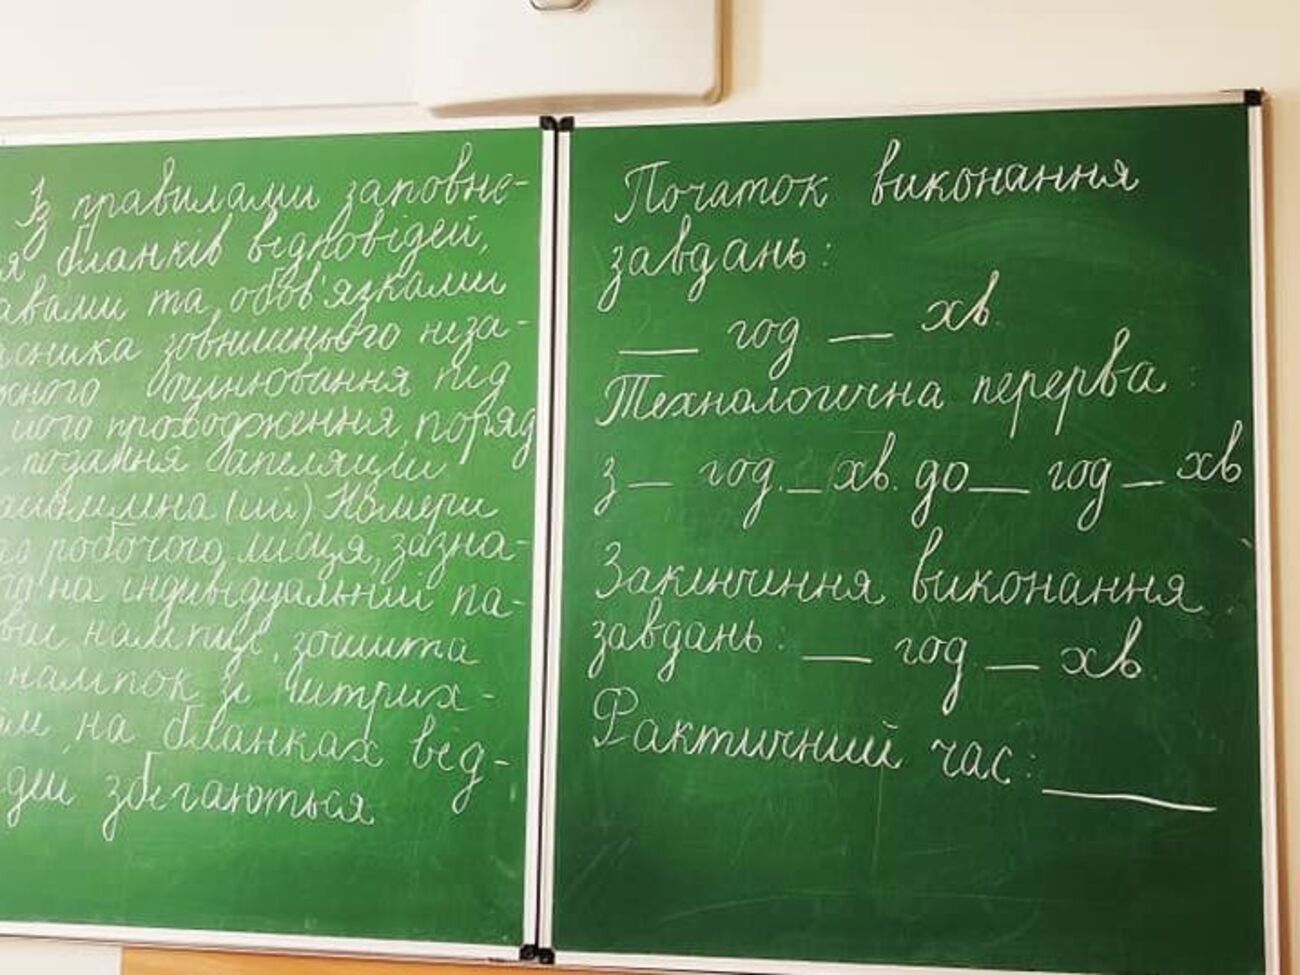 Із правилами заповне-
ня бланків відповідей,
авами та обов'язками
асника зовнішнього неза-
жного оцінювання під
його проходження, поряд
подання апеляцій
знайомлена (ий) Номери
го робочого місця, зазна-
на індивідуальній па-
вій наліпці, зошита
наліпок зі штрих-
ом, на бланках від-
дей збігаються
Початок виконання
завдань:
__ год __ хв.
Технологічна перерва:
з __ год. __ хв. до __ год __ хв
Закінчення виконання
завдань: __ год. __ хв
Фактичний час: ____